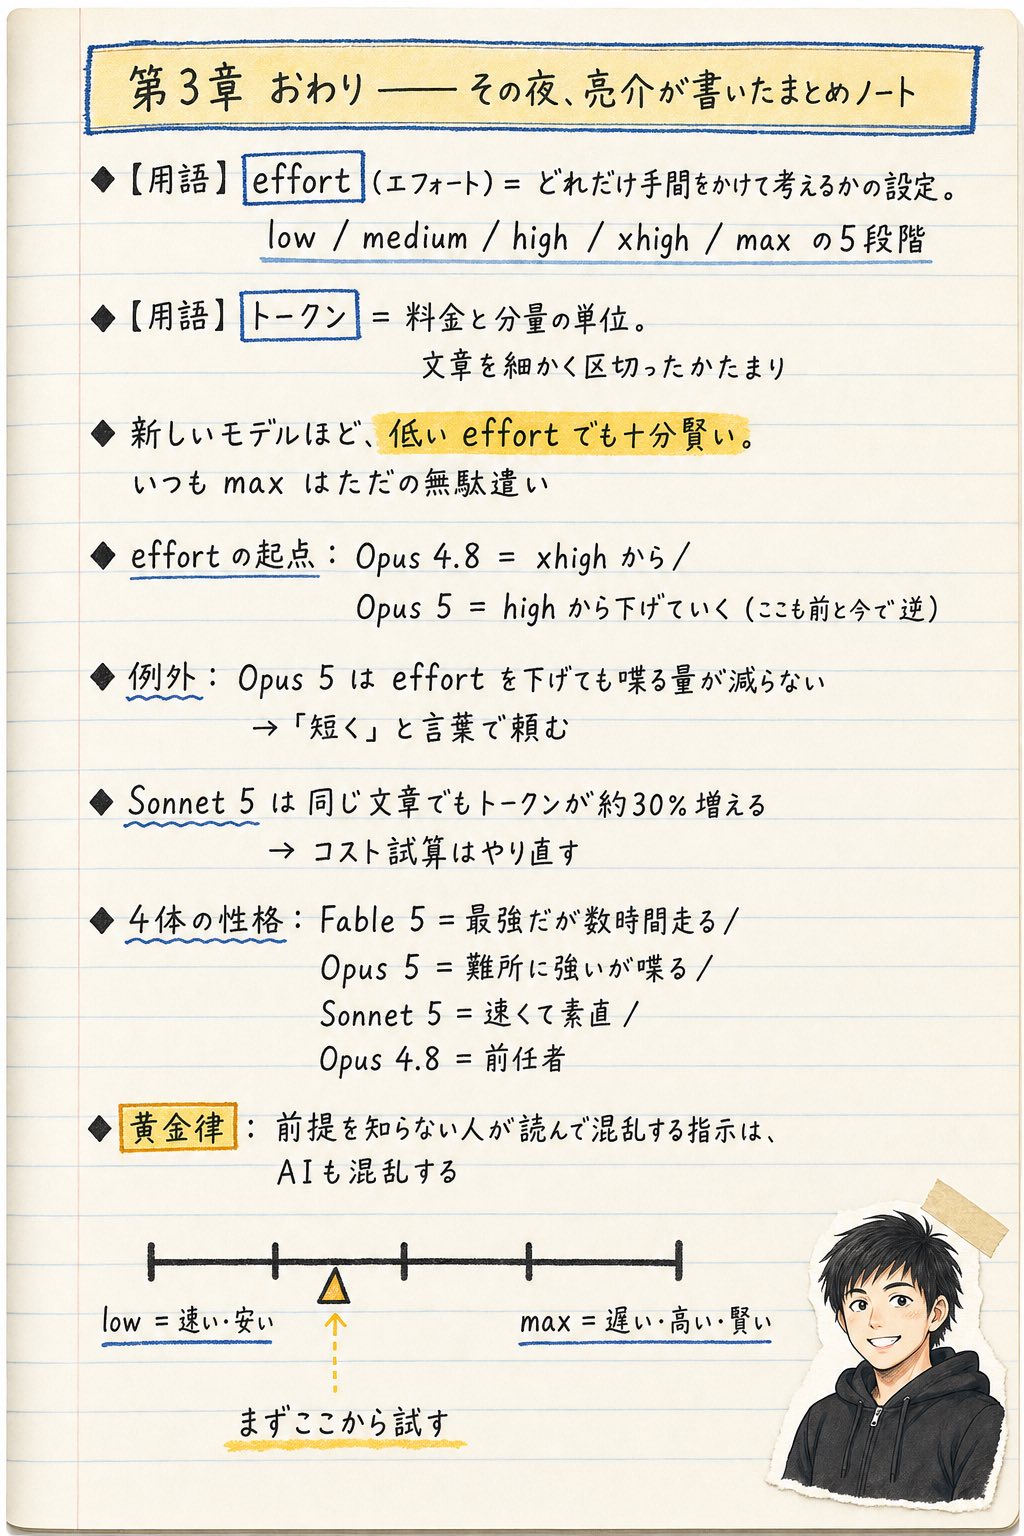 第3章 おわり —— その夜、亮介が書いたまとめノート
◆【用語】effort (エフォート) = どれだけ手間をかけて考えるかの設定。
low / medium / high / xhigh / max の5段階
◆【用語】トークン = 料金と分量の単位。
文章を細かく区切ったかたまり
◆ 新しいモデルほど、低い effort でも十分賢い。
いつも max はただの無駄遣い
◆ effort の起点: Opus 4.8 = xhigh から /
Opus 5 = high から下げていく (ここも前と今で逆)
◆ 例外: Opus 5 は effort を下げても喋る量が減らない
→「短く」と言葉で頼む
◆ Sonnet 5 は 同じ文章でもトークンが約30%増える
→ コスト試算はやり直す
◆ 4体の性格: Fable 5 = 最強だが数時間走る /
Opus 5 = 難所に強いが喋る /
Sonnet 5 = 速くて素直 /
Opus 4.8 = 前任者
◆ 黄金律: 前提を知らない人が読んで混乱する指示は、
AIも混乱する
low = 速い・安い
max = 遅い・高い・賢い
まずここから試す